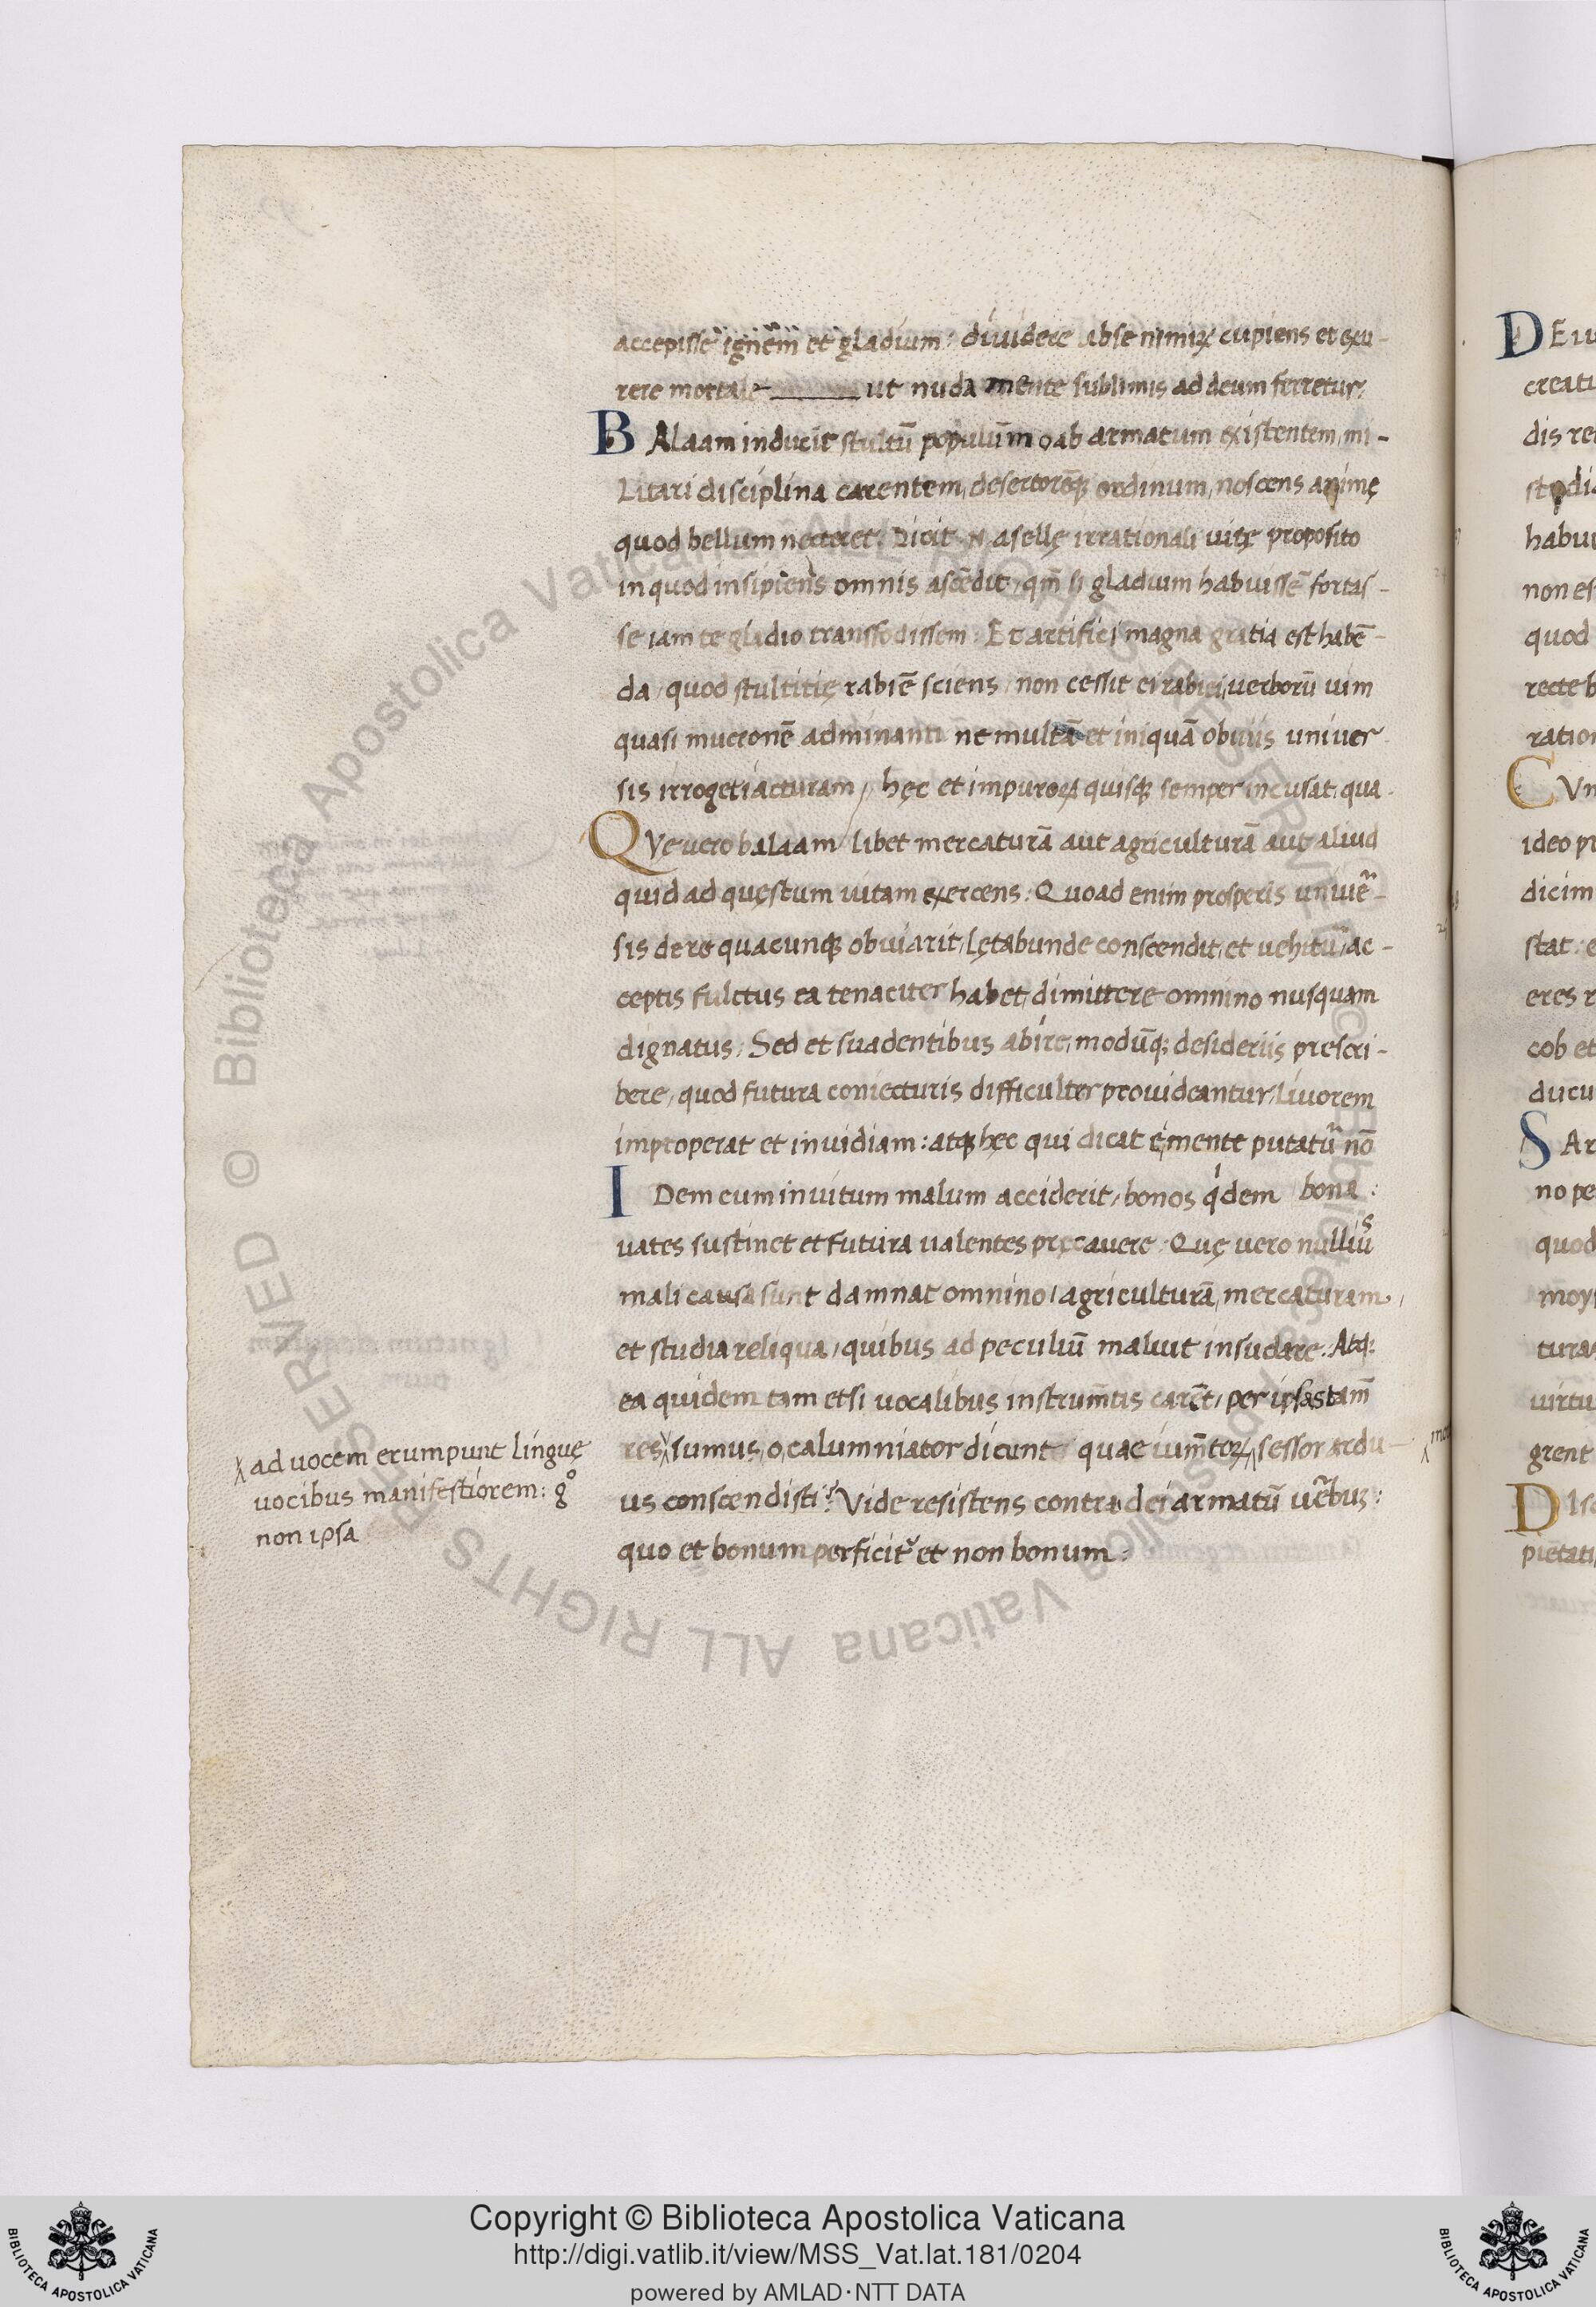 accepisse ignem et gladium: diuidere abse nimirꝝ cupiens et exu-
rere mortale ut nuda mente sublimis ad deum ferretur:
BAlaam inducit stultū populum oab armatum existentem, mi-
litari disciplina carentem, desertorēqꝫ ordinum, noscens animę
quod bellum necteret: Dicit .N. asellę irrationali uitę proposito
in quod insipiens omnis ascēdit, qm̄ si gladium habuissē fortas-
se iam te gladio transfodissem: Et artifici magna gratia est habē-
da, quod stultitię rabiē sciens, non cessit ei rabiei, uerborū uim
quasi mucronē adminanti ne multā et iniquā obuiis uniuer
sis irroget iacturam, hęc et impuroꝝ quisqꝫ semper incusat qua
QVe uero balaam libet mercaturā aut agriculturā aut aliud
quid ad quęstum uitam exercens: Quoad enim prosperis uniuē-
sis de re quacunqꝫ obuiarit, lętabunde conscendit, et uehitu, ac-
ceptis fultus ea tenaciter habet, dimittere omnino nusquam
dignatus: Sed et suadentibus abire, modūqꝫ desideriis prescri-
bere, quod futura coniecturis difficulter prouideantur, liuorem
improperat et inuidiam: atqꝫ hęc qui dicat ē mente putatu nō
IDem cum inuitum malum acciderit, bonos qdem bona:
uates sustinet et futura ualentes pręcauere: Quę uero nullius
mali causa sunt damnat omnino, agriculturā, mercaturam,
et studia reliqua, quibus ad peculiū maluit insudare: Atqꝫ
ea quidem tam etsi uocalibus instrum̄tis carēt, per ipsas tam̄
res sumus, o, calumniator dicunt quae ium̄toꝝ sessor ardu-
us conscendisti: Vide resistens contra dei armatū uēbuꝫ:
quo et bonum perficit et non bonum:
ad uocem erumpunt linguę
uocibus manifestiorem: gº
non ipsa
DE iu
creatu
dis re
studia
habui
non es
quod
recte b
ration
CVm
ideo pr
dicim
stat: e
eres r
cob et
ducu
SAr
no pe
quod
m̄oy
tura
uirtu
grent
DIsc
pietati
Copyright © Biblioteca Apostolica Vaticana
http://digi.vatlib.it/view/MSS_Vat.lat.181/0204
powered by AMLAD·NTT DATA
BIBLIOTECA APOSTOLICA VATICANA
BIBLIOTECA APOSTOLICA VATICANA
© Biblioteca Apostolica Vaticana ALL RIGHTS RESERVED